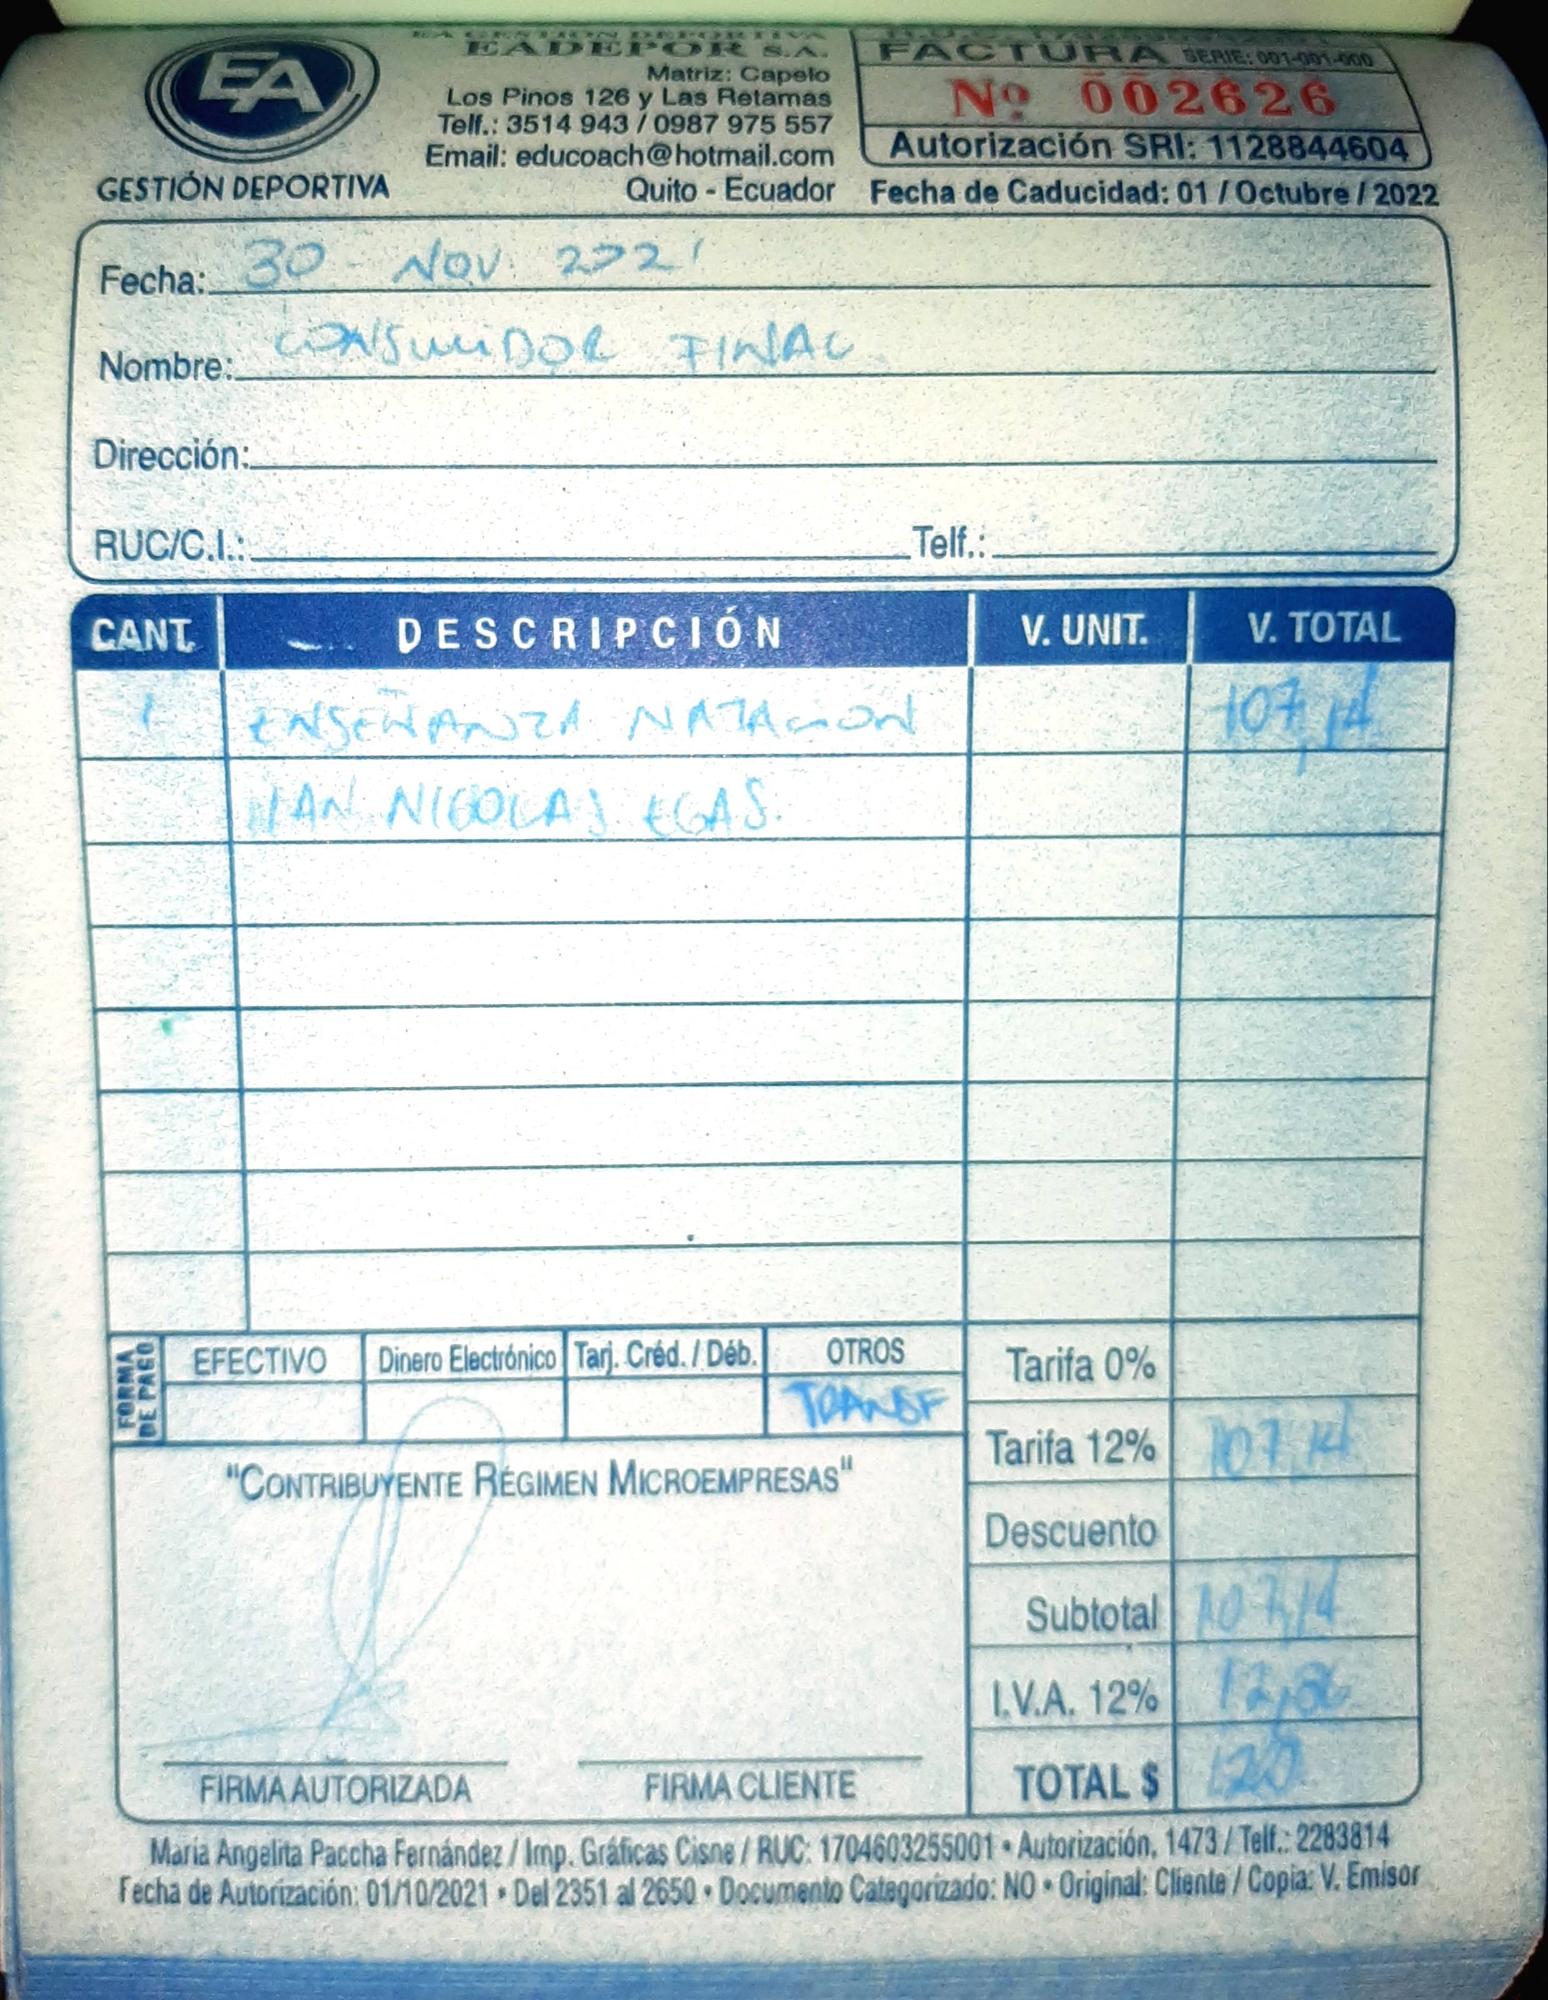 EA
GESTIÓN DEPORTIVA
EA GESTION DEPORTIVA
EADEPOR S.A.
Matriz: Capelo
Los Pinos 126 y Las Retamas
Telf.: 3514 943 / 0987 975 557
Email: educoach@hotmail.com
Quito - Ecuador
FACTURA SERIE: 001-001-000
Nº 002626
Autorización SRI: 1128844604
Fecha de Caducidad: 01 / Octubre / 2022
Fecha: 30 - NOV. 2021
Nombre: CONSUMIDOR FINAL
Dirección:
RUC/C.I.: Telf.:
CANT. DESCRIPCIÓN V. UNIT. V. TOTAL
1 ENSEÑANZA NATACION 107,14
NICOLAS EGAS.
FORMA DE PAGO
EFECTIVO Dinero Electrónico Tarj. Créd. / Déb. OTROS
TRANSF
Tarifa 0%
Tarifa 12% 107,14
Descuento
Subtotal 107,14
I.V.A. 12% 12,86
TOTAL $ 120
"CONTRIBUYENTE RÉGIMEN MICROEMPRESAS"
FIRMA AUTORIZADA FIRMA CLIENTE
María Angelita Paccha Fernández / Imp. Gráficas Cisne / RUC: 1704603255001 • Autorización. 1473 / Telf.: 2283814
Fecha de Autorización: 01/10/2021 • Del 2351 al 2650 • Documento Categorizado: NO • Original: Cliente / Copia: V. Emisor